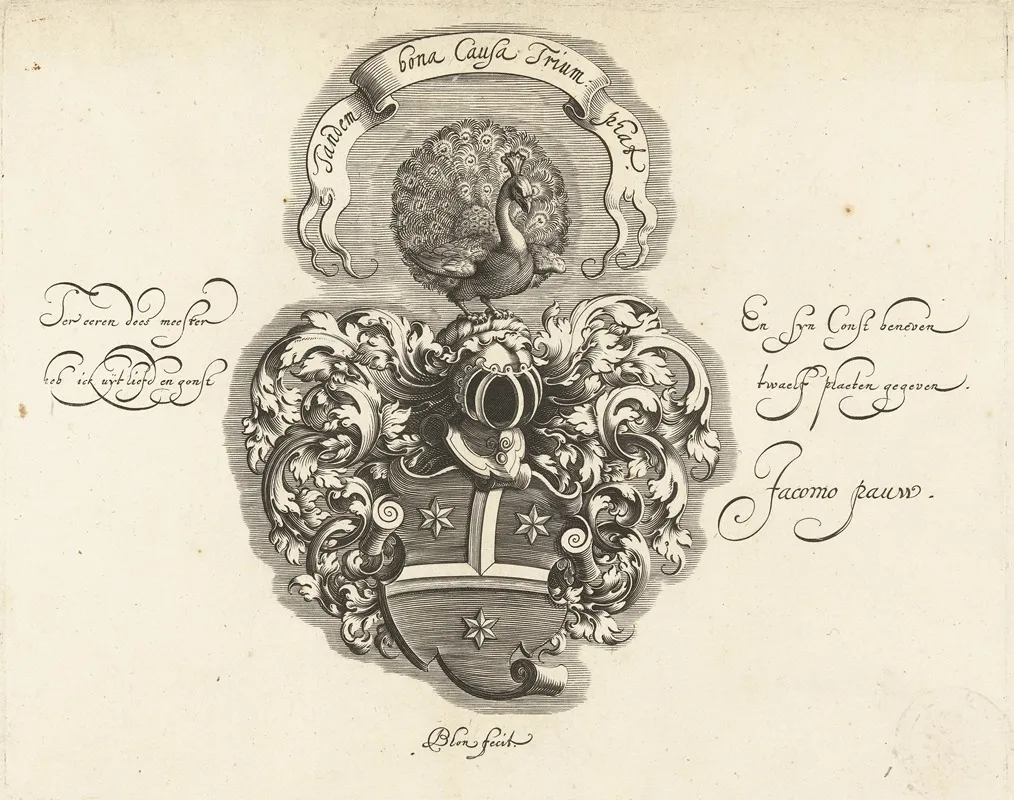 Tandem bona Causa Trium-
phat.
Ter eeren dees meester
heb ick uÿt liefd en gonst
En syn Const beneven
twaelf plaeten gegeven.
Jacomo pauw.
Blon fecit.